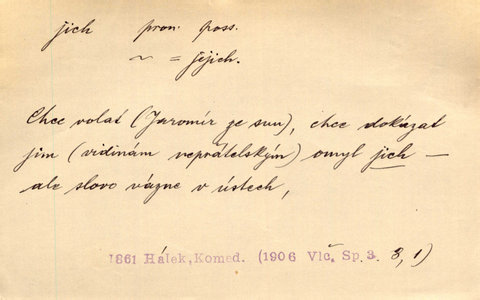 jich pron. poss.
~ = jejich.
Chce volat (Jaromír ze snu), chce dokázat
jim (vidinám nepřátelským) omyl jich —
ale slovo vázne v ústech,
1861 Hálek, Komed. (1906 Vlč. Sp. 3. 3, 1)